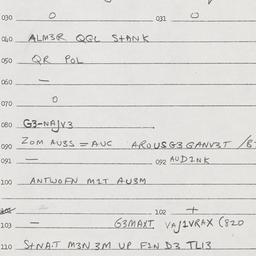 030 O 031 O
040 ALM3R QGL S+ANK
050 QR POL
060 —
070 O
080 G3-NAJV3
090 ZOM AU3S = AUC AROUSG3 GANV3T
091 — 092 AUD2NK
100 ANTWOFN M1T AU3M
102 +
103 — G3MAXT VAJ1VRAX (820
110 S+NAT M3N 3M UP F2N D3 TL13